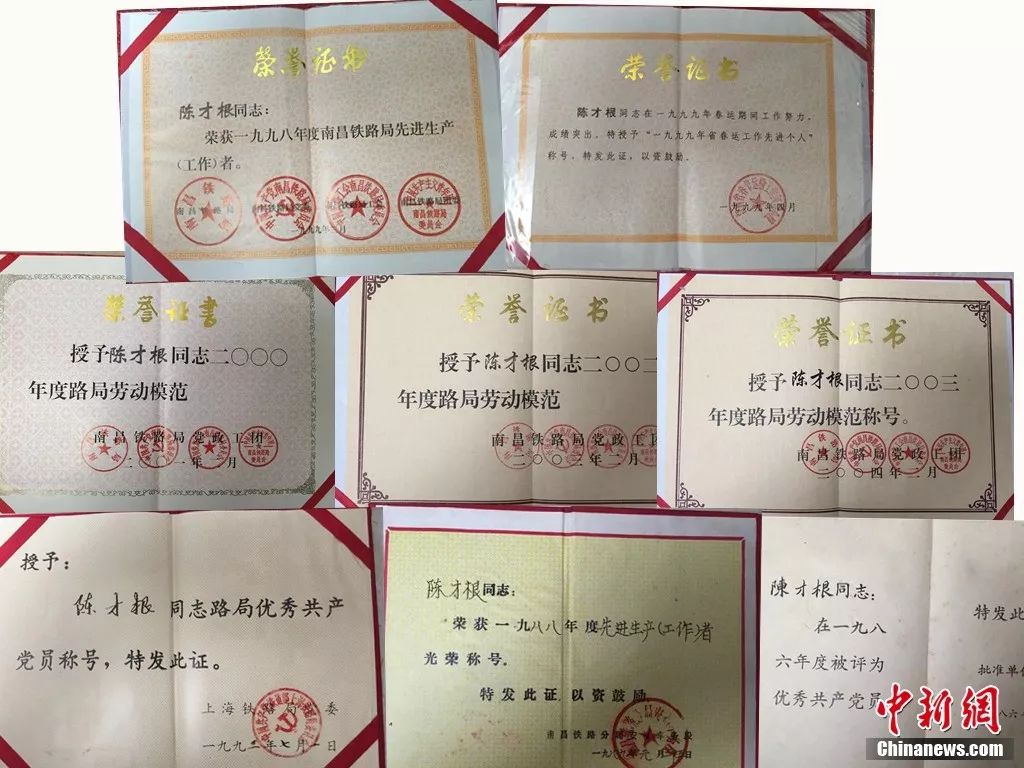 荣誉证书
陈才根同志:
荣获一九九八年度南昌铁路局先进生产
(工作)者。
南昌铁路局
一九九九年 月
荣誉证书
陈才根同志在一九九九年春运期间工作努力,
成绩突出。特授予“一九九九年省春运工作先进个人”
称号,特发此证,以资鼓励。
一九九九年四月
荣誉证书
授予陈才根同志二〇〇〇
年度路局劳动模范
南昌铁路局党政工团
二〇〇一年 月
荣誉证书
授予陈才根同志二〇〇二
年度路局劳动模范
南昌铁路局党政工团
二〇〇三年二月
荣誉证书
授予陈才根同志二〇〇三
年度路局劳动模范称号。
南昌铁路局党政工团
二〇〇四年二月
授予:
陈才根同志路局优秀共产
党员称号,特发此证。
上海铁路局 委
一九九二年七月一日
陈才根同志:
荣获一九八八年度先进生产(工作)者
光荣称号。
特发此证以资鼓励
南昌铁路分
一九八九年元月
陳才根同志:
在一九八
六年度被评为
优秀共产党员
特发此
批准单位
中新网
Chinanews.com